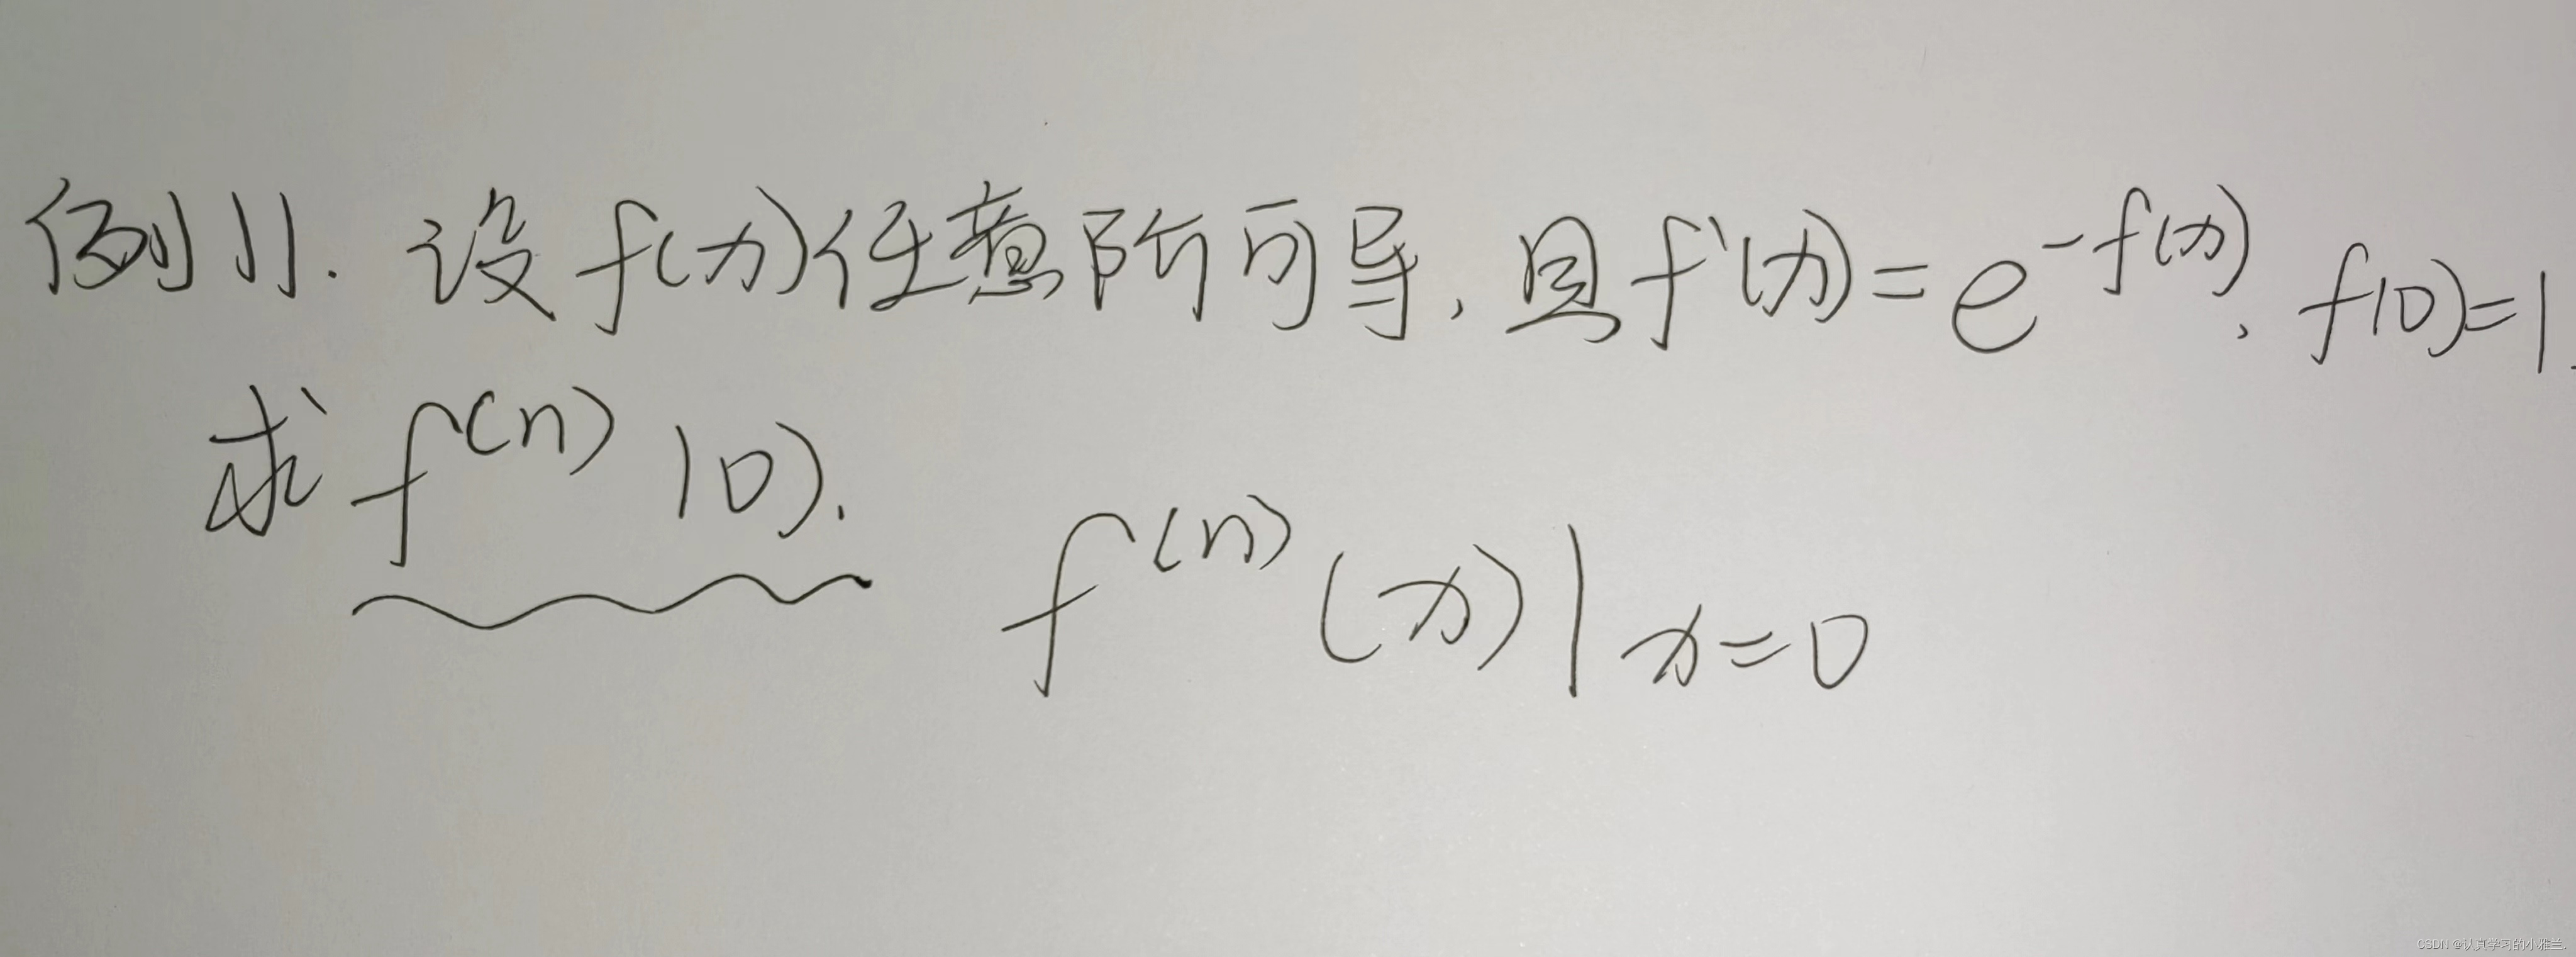 例11. 设f(x)任意阶可导, 且f'(x)=e^{-f(x)}, f(0)=1.
求f^{(n)}(0).
f^{(n)}(x)|_{x=0}
CSDN @认真学习的小雅兰.